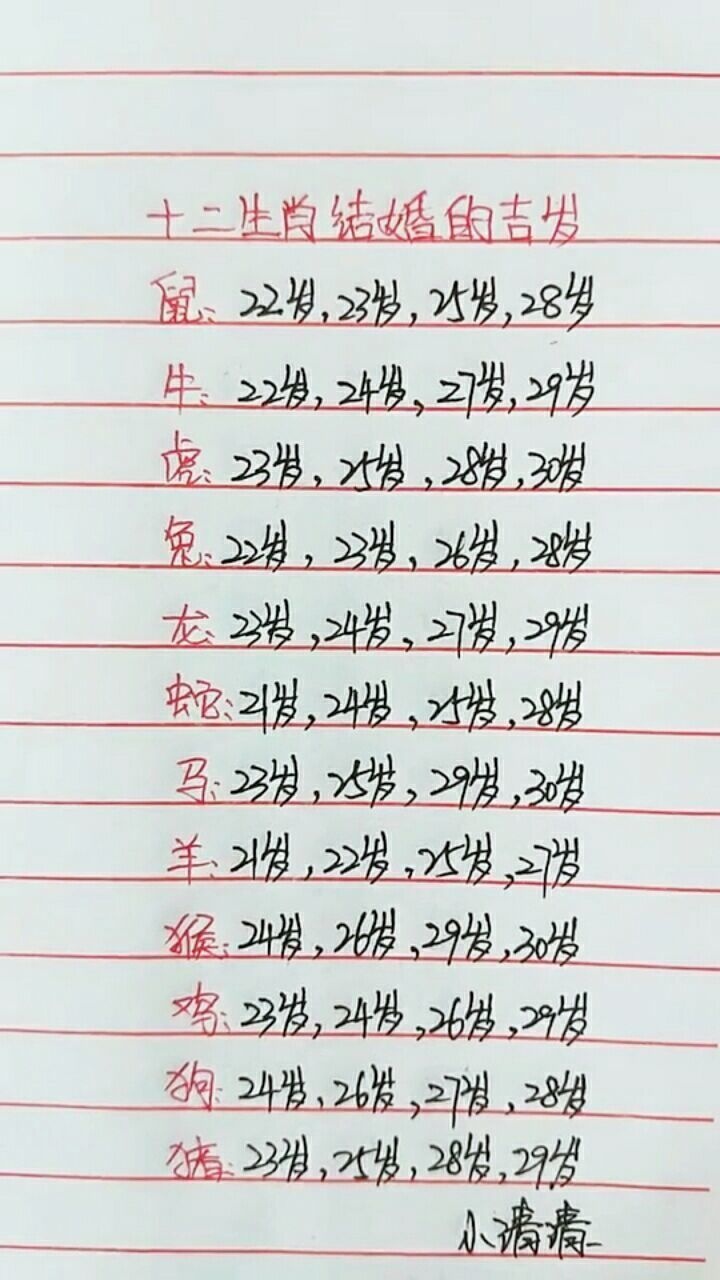 十二生肖结婚的吉岁
鼠：22岁，23岁，25岁，28岁
牛：22岁，24岁，27岁，29岁
虎：23岁，25岁，28岁，30岁
兔：22岁，23岁，26岁，28岁
龙：23岁，24岁，27岁，29岁
蛇：21岁，24岁，25岁，28岁
马：23岁，25岁，29岁，30岁
羊：21岁，22岁，25岁，27岁
猴：24岁，26岁，29岁，30岁
鸡：23岁，24岁，26岁，29岁
狗：24岁，26岁，27岁，28岁
猪：23岁，25岁，28岁，29岁